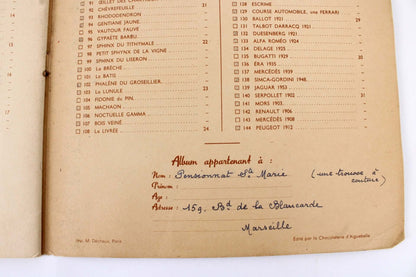 91 ŒILLET DES CHARTREUX
92 CHÈVREFEUILLE 21
93 RHODODENDRON
94 GENTIANE JAUNE
95 VAUTOUR FAUVE
96 GYPAÈTE BARBU 22
97 SPHINX DU TITHYMALE
98 PETIT SPHYNX DE LA VIGNE
99 SPHINX DU LISERON
100 LA BRÈCHE
101 LA BATIS
102 PHALÈNE DU GROSEILLIER
103 LA LUNULE 23
104 FIDONIE DU PIN
105 MACHAON
106 NOCTUELLE GAMMA
107 BOIS VEINÉ
108 LA LIVRÉE 24
128 ESCRIME
129 COURSE AUTOMOBILE, une FERRARI
130 BALLOT 1921 29
131 TALBOT DARRACQ 1921
132 DUESENBERG 1921
133 ALFA ROMÉO 1924
134 DELAGE 1925
135 BUGATTI 1929 30
136 ÉRA 1935
137 MERCÉDÈS 1939
138 SIMCA-GORDINI 1948
139 JAGUAR 1953
140 SERPOLLET 1902 31
141 MORS 1903
142 RENAULT 1906
143 MERCÉDÈS 1908
144 PEUGEOT 1912
Album appartenant à :
Nom : Pensionnat Ste Marie (une trousse à couture)
Prénom :
Age :
Adresse : 159 Bd de la Blancarde
Marseille
Imp. M. Déchaux, Paris
Édité par la Chocolaterie d'Aiguebelle